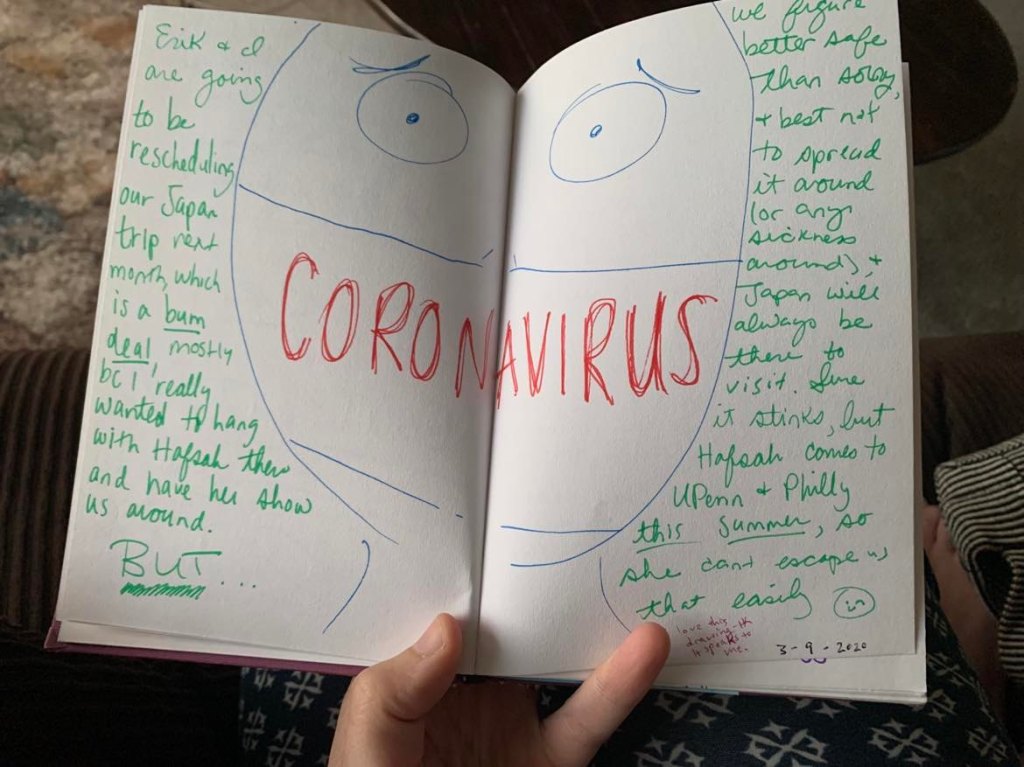 Erik & I
are going
to be
rescheduling
our Japan
trip next
month, which
is a bum
deal, mostly
bc I really
wanted to hang
with Hafsah there
and have her show
us around.
BUT...
CORONAVIRUS
we figure
better safe
than sorry,
& best not
to spread
it around
(or any
sickness
around), &
Japan will
always be
there to
visit. Sure
it stinks, but
Hafsah comes to
UPenn & Philly
this summer, so
she can't escape us
that easily
love this
drawing-
it speaks to
me.
3-9-2020